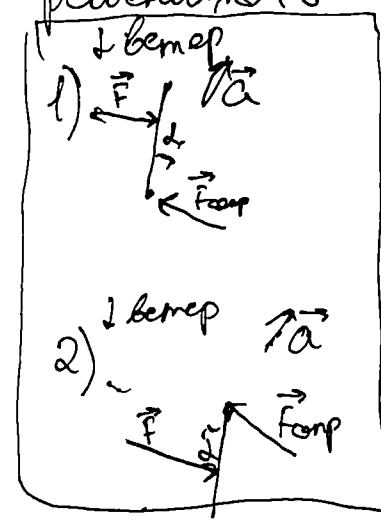 ↓ ветер
1) F⃗ a⃗
α
F⃗сопр
↓ ветер
a⃗
2)
F⃗ F⃗сопр
α